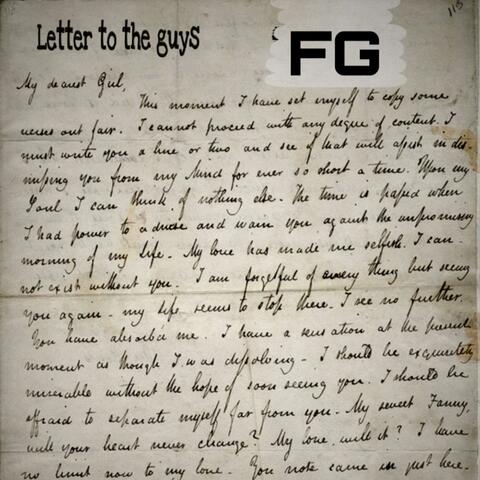 115
Letter to the guys
FG
My dearest Girl,
This moment I have set myself to copy some
verses out fair. I cannot proceed with any degree of content. I
must write you a line or two and see if that will assist in dis-
missing you from my Mind for ever so short a time. Upon my
Soul I can think of nothing else. The time is passed when
I had power to advise and warn you against the unpromising
morning of my life. My love has made me selfish. I can-
not exist without you. I am forgetful of every thing but seeing
you again - my life seems to stop there. I see no further.
You have absorb'd me. I have a sensation at the present
moment as though I was dissolving - I should be exquisitely
miserable without the hope of soon seeing you. I should be
affraid to separate myself far from you. My sweet Fanny,
will your heart never change? My love, will it? I have
no limit now to my love. You note came in just here.